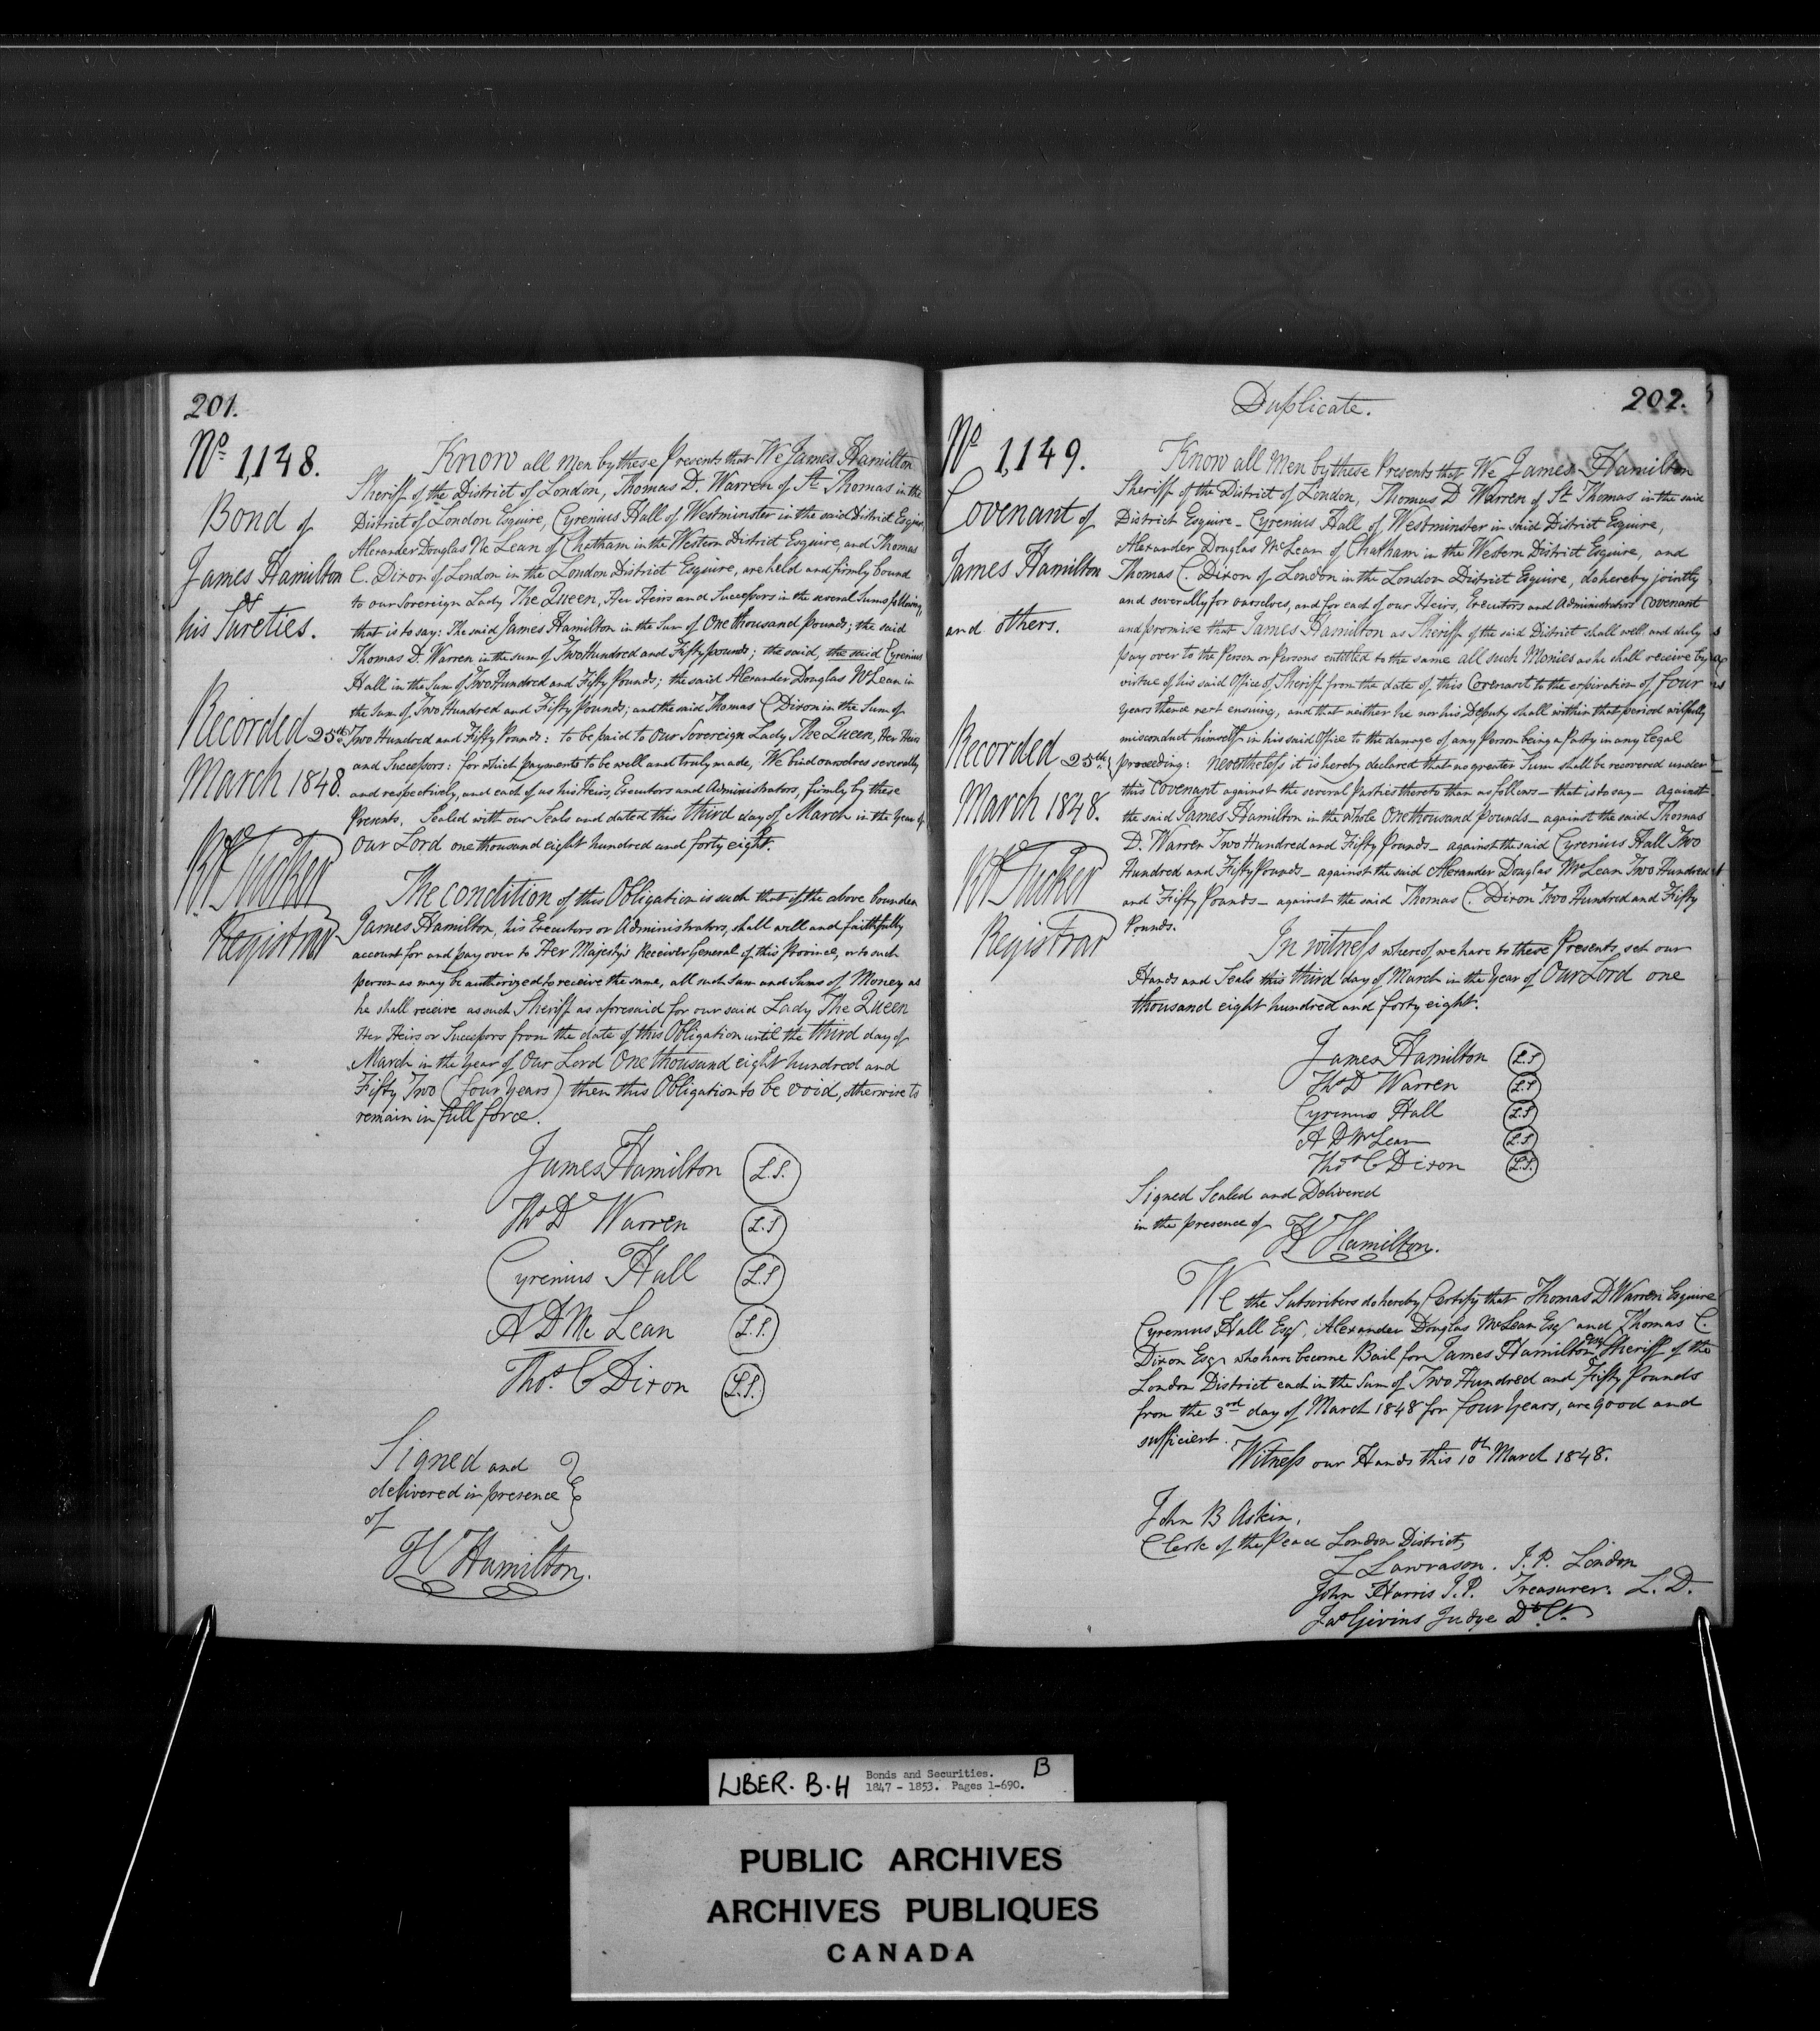 201.
No 1,148.
Bond of
James Hamilton
&
his Sureties.
Recorded 25th
March 1848.
Rd Tucker
Registrar
Know all Men by these Presents that We James Hamilton
Sheriff of the District of London, Thomas D. Warren of St Thomas in the
District of London Esquire, Cyrenius Hall of Westminster in the said District Esquire
Alexander Douglas Mc Lean of Chatham in the Western District Esquire, and Thomas
C. Dixon of London in the London District Esquire, are held and firmly bound
to our Sovereign Lady The Queen, Her Heirs and Successors in the several Sums following,
that is to say: The said James Hamilton in the Sum of One thousand Pounds; the said
Thomas D. Warren in the sum of Two Hundred and Fifty pounds; the said, the said Cyrenius
Hall in the Sum of Two Hundred and Fifty Pounds; the said Alexander Douglas McLean in
the Sum of Two Hundred and Fifty Pounds; and the said Thomas C Dixon in the Sum of
Two Hundred and Fifty Pounds: to be paid to Our Sovereign Lady The Queen, Her Heirs
and Successors: for which payments to be well and truly made, We bind ourselves severally
and respectively, and each of us his Heirs, Executors and Administrators, firmly by these
Presents. Sealed with our Seals and dated this third day of March in the Year of
Our Lord one thousand eight hundred and forty eight.
The condition of this Obligation is such that if the above bounden
James Hamilton, his Executors or Administrators, shall well and faithfully
account for and pay over to Her Majesty's Receiver General of this Province, or to such
person as may be authorized to receive the same, all such Sum and Sums of Money as
he shall receive as such Sheriff as aforesaid for our said Lady The Queen
Her Heirs or Successors from the date of this Obligation until the third day of
March in the year of Our Lord One thousand eight hundred and
Fifty Two (four years) then this Obligation to be void, otherwise to
remain in full force.
James Hamilton L.S.
Thos D Warren L.S
Cyrenius Hall L.S
A D Mc Lean L.S.
Thos. C Dixon L.S.
Signed and
delivered in presence
of
H Hamilton.
Duplicate.
202.
No 1,149.
Covenant of
James Hamilton
and others.
Recorded 25th
March 1848.
Rd Tucker
Registrar
Know all Men by these Presents that We James Hamilton
Sheriff of the District of London, Thomas D Warren of St Thomas in the said
District Esquire - Cyrenius Hall of Westminster in said District Esquire,
Alexander Douglas McLean of Chatham in the Western District Esquire, and
Thomas C. Dixon of London in the London District Esquire, do hereby jointly
and severally for ourselves, and for each of our Heirs, Executors and Administrators Covenant
and promise that James Hamilton as Sheriff of the said District shall well and duly
pay over to the Person or Persons entitled to the same all such Monies as he shall receive by
virtue of his said Office of Sheriff from the date of this Covenant to the expiration of four
years thence next ensuing, and that neither he nor his Deputy shall within that period wilfully
misconduct himself in his said Office to the damage of any Person being a Party in any legal
proceeding: Nevertheless it is hereby declared that no greater Sum shall be recovered under
this Covenant against the several Parties thereto than as follows - that is to say - Against
the said James Hamilton in the whole One thousand Pounds - against the said Thomas
D. Warren Two Hundred and Fifty Pounds - against the said Cyrenius Hall Two
Hundred and Fifty Pounds - against the said Alexander Douglas McLean Two Hundred
and Fifty Pounds - against the said Thomas C. Dixon Two Hundred and Fifty
Pounds.
In witness whereof we have to these Presents, set our
Hands and Seals this third day of March in the Year of Our Lord one
thousand eight hundred and forty eight.
James Hamilton L.S
Thos D Warren L.S
Cyrenius Hall L.S
A D McLean L.S
Thos C Dixon L.S.
Signed Sealed and Delivered
in the presence of
H Hamilton.
We the Subscribers do hereby Certify that Thomas D Warren Esquire
Cyrenius Hall Esqr, Alexander Douglas McLean Esqr and Thomas C.
Dixon Esqr who have become Bail for James Hamilton Esqr Sheriff of the
London District each in the Sum of Two Hundred and Fifty Pounds
from the 3rd day of March 1848 for four Years, are good and
sufficient.
Witness our Hands this 10th March 1848.
John B Askin,
Clerk of the Peace London District,
L Lawrason. J.P. London
John Harris J.P. Treasurer. L. D.
Jas Givins Judge Dt Ct.
LIBER. B.H
Bonds and Securities. B
1847 - 1853. Pages 1-690.
PUBLIC ARCHIVES
ARCHIVES PUBLIQUES
CANADA